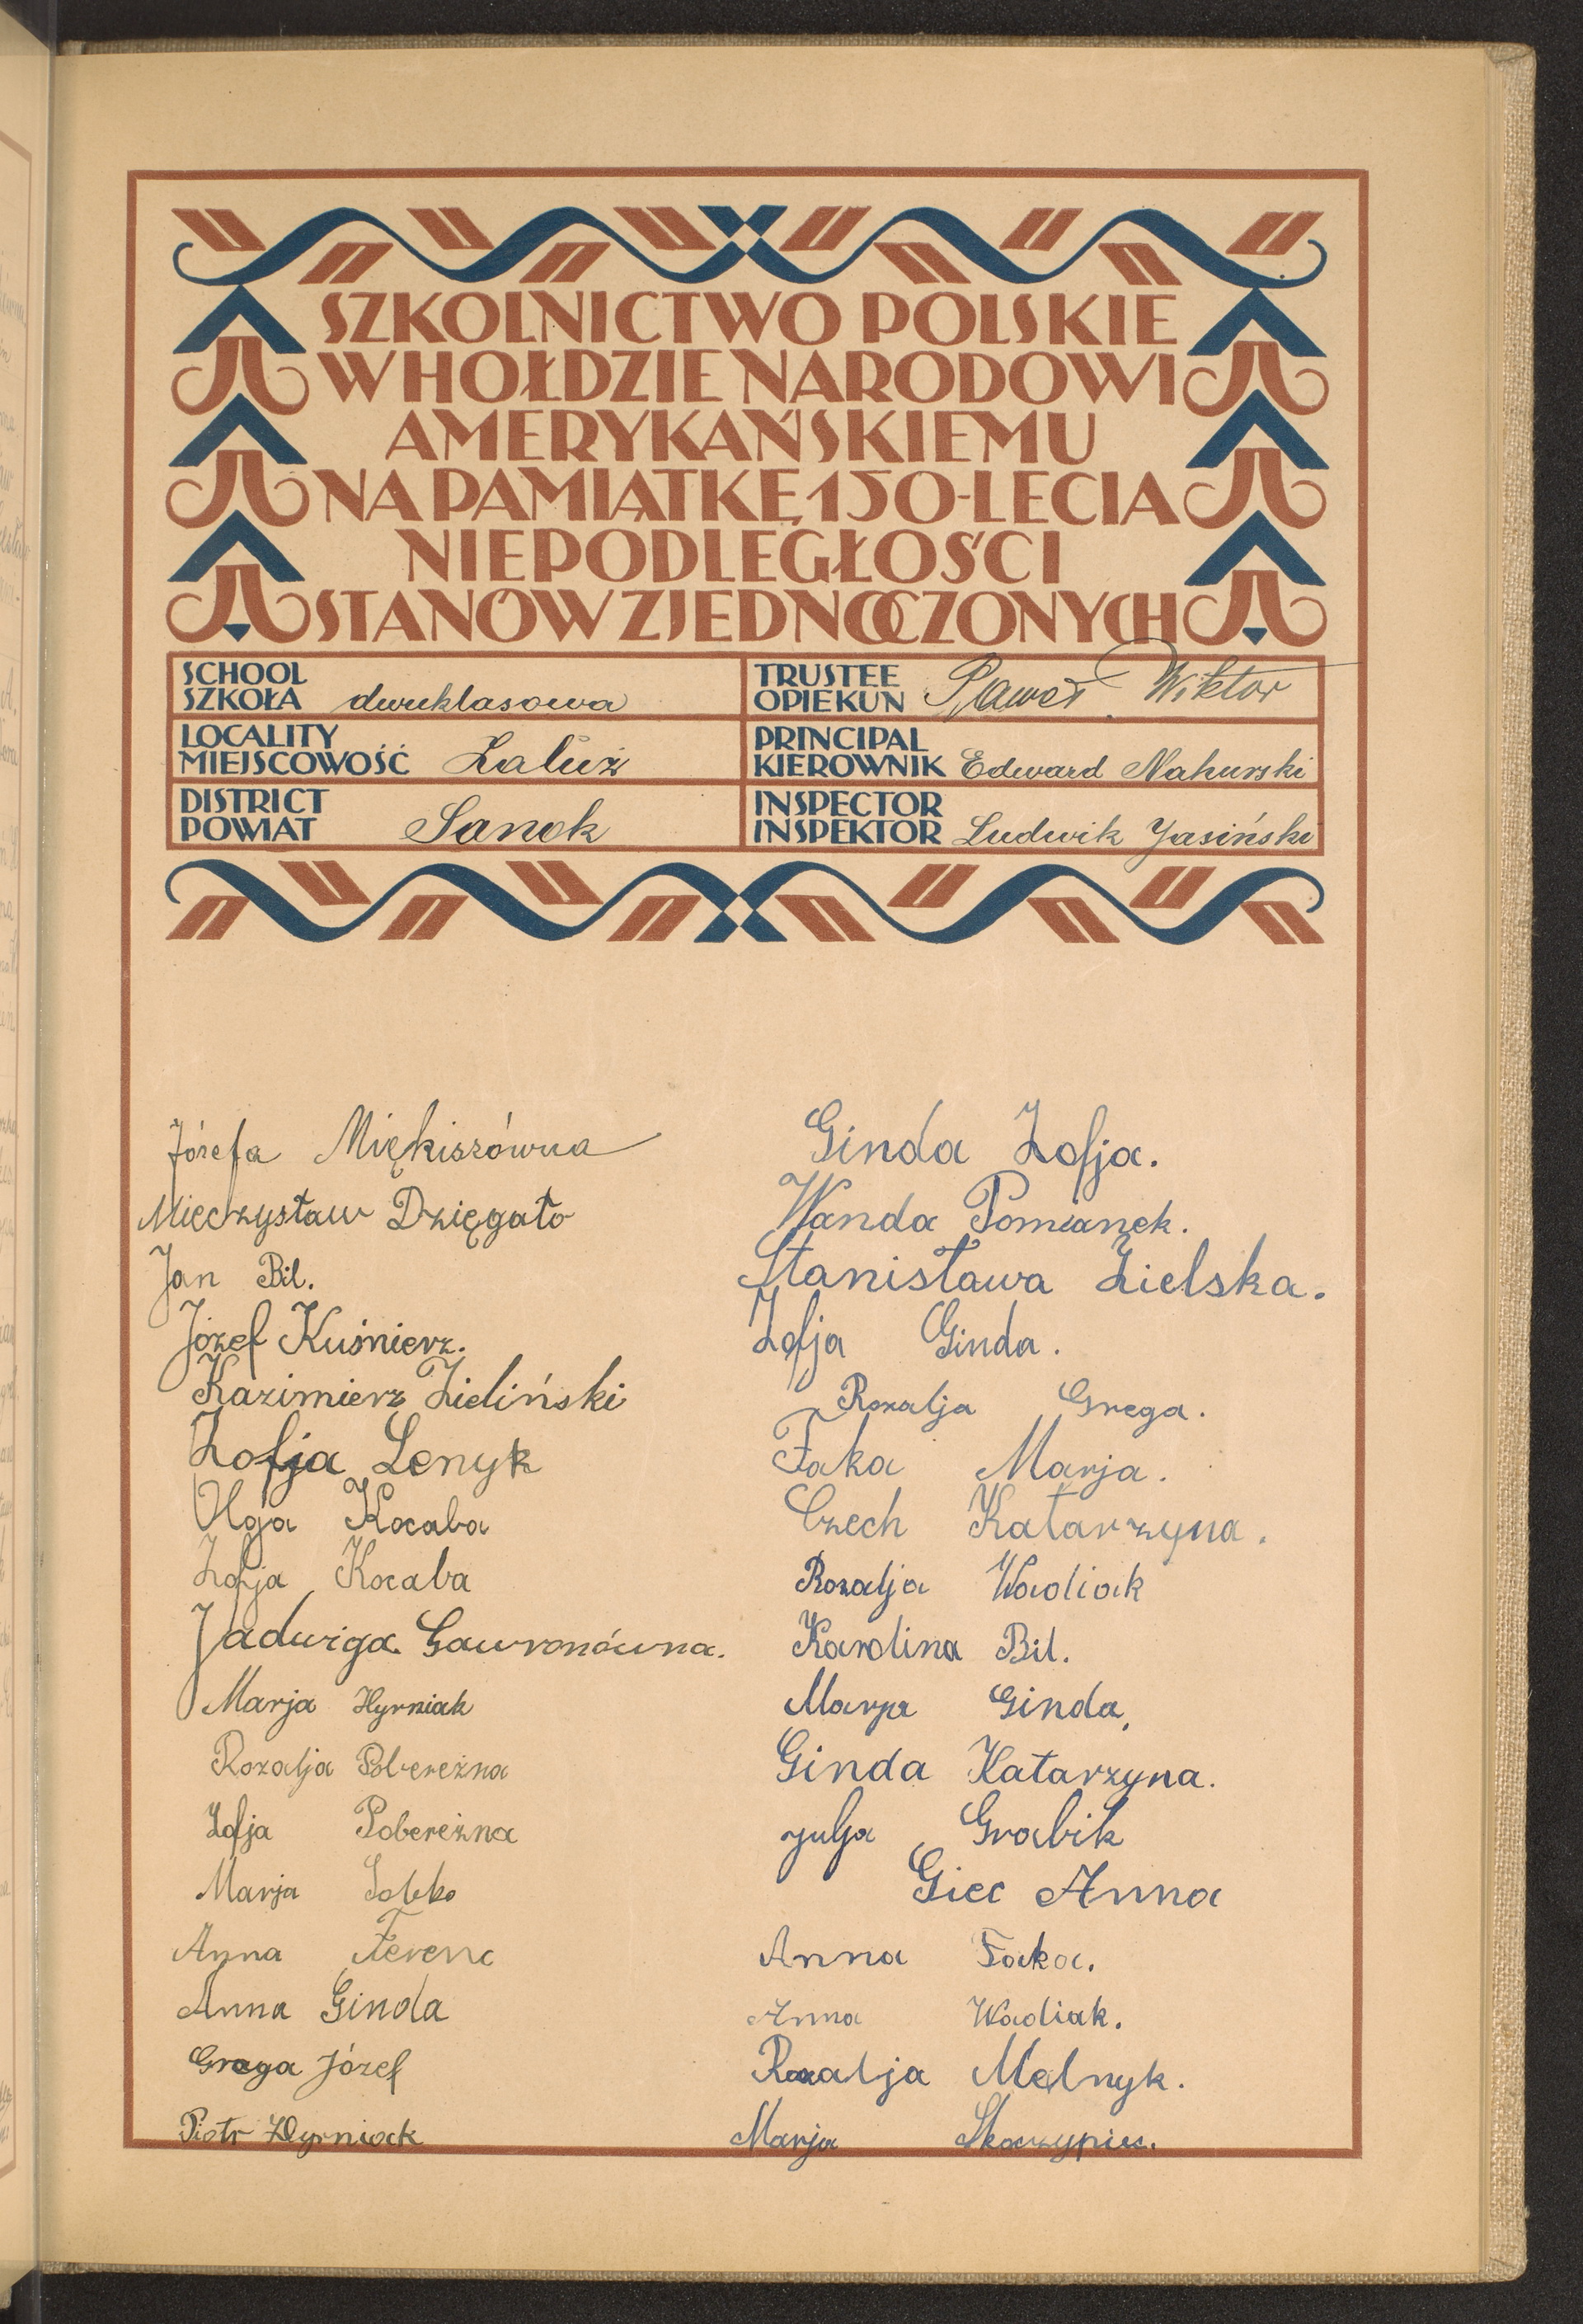 SZKOLNICTWO POLSKIE
W HOŁDZIE NARODOWI
AMERYKAŃSKIEMU
NA PAMIĄTKĘ 150-LECIA
NIEPODLEGŁOŚCI
STANÓW ZJEDNOCZONYCH
SCHOOL
SZKOŁA dwuklasowa
TRUSTEE
OPIEKUN Paweł Wiktor
LOCALITY
MIEJSCOWOŚĆ Załuż
PRINCIPAL
KIEROWNIK Edward Nahurski
DISTRICT
POWIAT Sanok
INSPECTOR
INSPEKTOR Ludwik Jasiński
Józefa Miękiszówna
Mieczysław Dzięgało
Jan Bil.
Józef Kuśnierz.
Kazimierz Zieliński
Zofja Lenyk
Olga Kocaba
Zofja Kocaba
Jadwiga Gawronówna.
Marja Hyrniak
Rozalja Pobereżna
Zofja Pobereżna
Marja Sobko
Anna Ferenc
Anna Ginda
Grega Józef
Piotr Hyrniack
Ginda Zofja.
Wanda Pomianek.
Stanisława Zielska.
Zofja Ginda.
Rozalja Grega.
Faka Marja.
Czech Katarzyna.
Rozalja Wadiak
Karolina Bil.
Marja Ginda,
Ginda Katarzyna.
Julja Grabik
Giec Anna
Anna Faka.
Anna Wadiak.
Rozalja Melnyk.
Marja